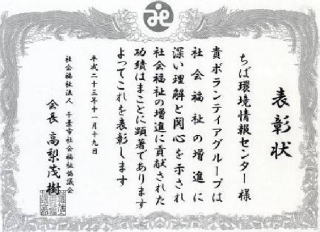 表彰状
ちば環境情報センター 様
貴ボランティアグループは
社会福祉の増進に
深い理解と関心を示され
社会福祉の増進に貢献された
功績はまことに顕著であります
よってこれを表彰します
平成二十三年十一月十九日
社会福祉法人 千葉市社会福祉協議会
会長 高梨茂樹